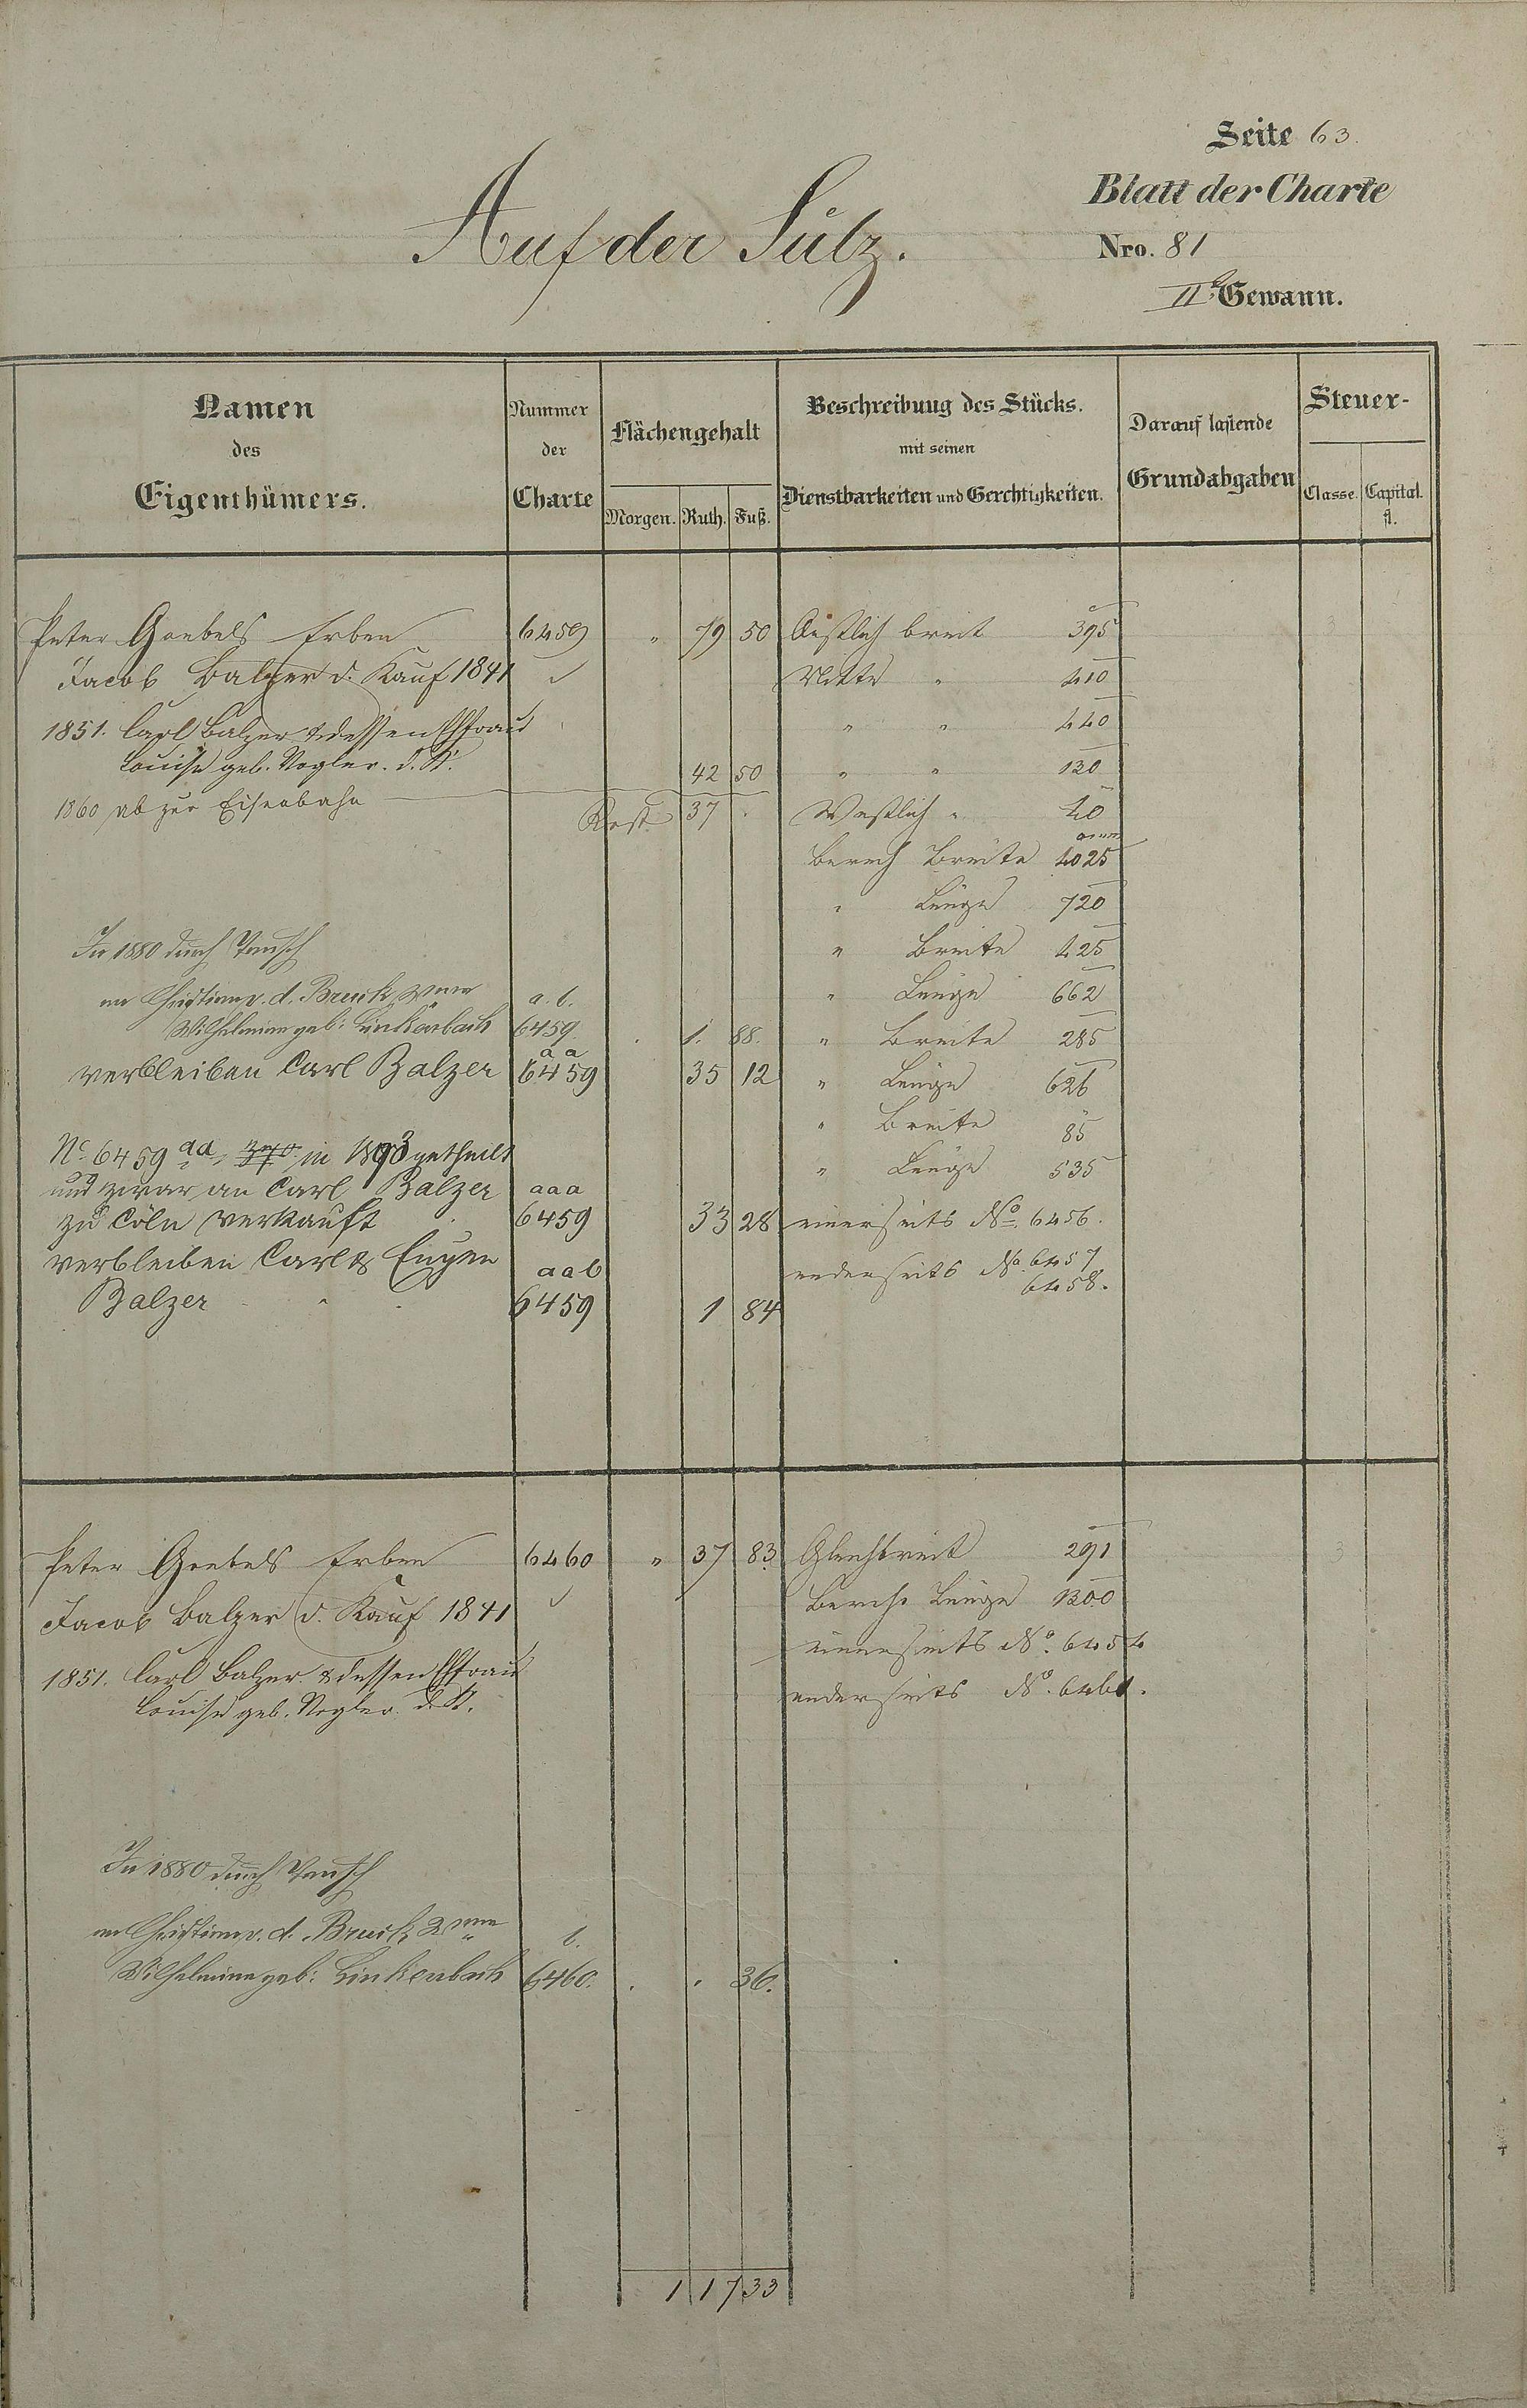 Seite 63.
Blatt der Charte
Auf der Sülz.
Nro. 81
IIte Gewann.
Namen des Eigenthümers.
Nummer der Charte
Flächengehalt
Morgen. Ruth. Fuß.
Beschreibung des Stücks.
mit seinen
Dienstbarkeiten und Gerechtigkeiten.
Darauf lastende
Grundabgaben
Steuer-
Classe. Capital.
fl.
Peter Goebels Erben 6459 " 79 50 Oestlich breit 395
Jacob Balzer d. Kauf 1841 Mitte " 410
1851. Carl Balzer & dessen Ehfrau " " 440
Louise geb. Vogler. d. K. 42 50 " " 130
1860 ab zur Eisenbahn Rest 37 . Westlich " 40
Berech Breite 4025
" Länge 720
In 1880 durch Tausch " Breite 425
an Christian v. d. Bruck a. b. " Länge 662
Wilhelmine geb: Linkenbach 6459. . 1. 88. " Breite 285
verbleiben Carl Balzer aa 6459 35 12 " Länge 626
" Breite 85
No. 6459 aa, in 1893 getheilt " Länge 535
und zwar an Carl Balzer aaa
zu Cöln verkauft 6459 33 28 einerseits No. 6456.
verbleiben Carl & Eugen aab anderseits No. 6457
6458.
Balzer 6459 1 84
Peter Goebels Erben 6460 " 37 83 Gleichbreit 291
Jacob Balzer d. Kauf 1841 Berech. Länge 1300
einerseits No. 6454
1851. Carl Balzer & dessen Ehfrau
Louise geb. Vogler. d. K. anderseits No. 6461.
In 1880 durch Tausch
an Christian v. d. Bruck b.
Wilhelmine geb: Linkenbach 6460. . . 36.
1 17 33